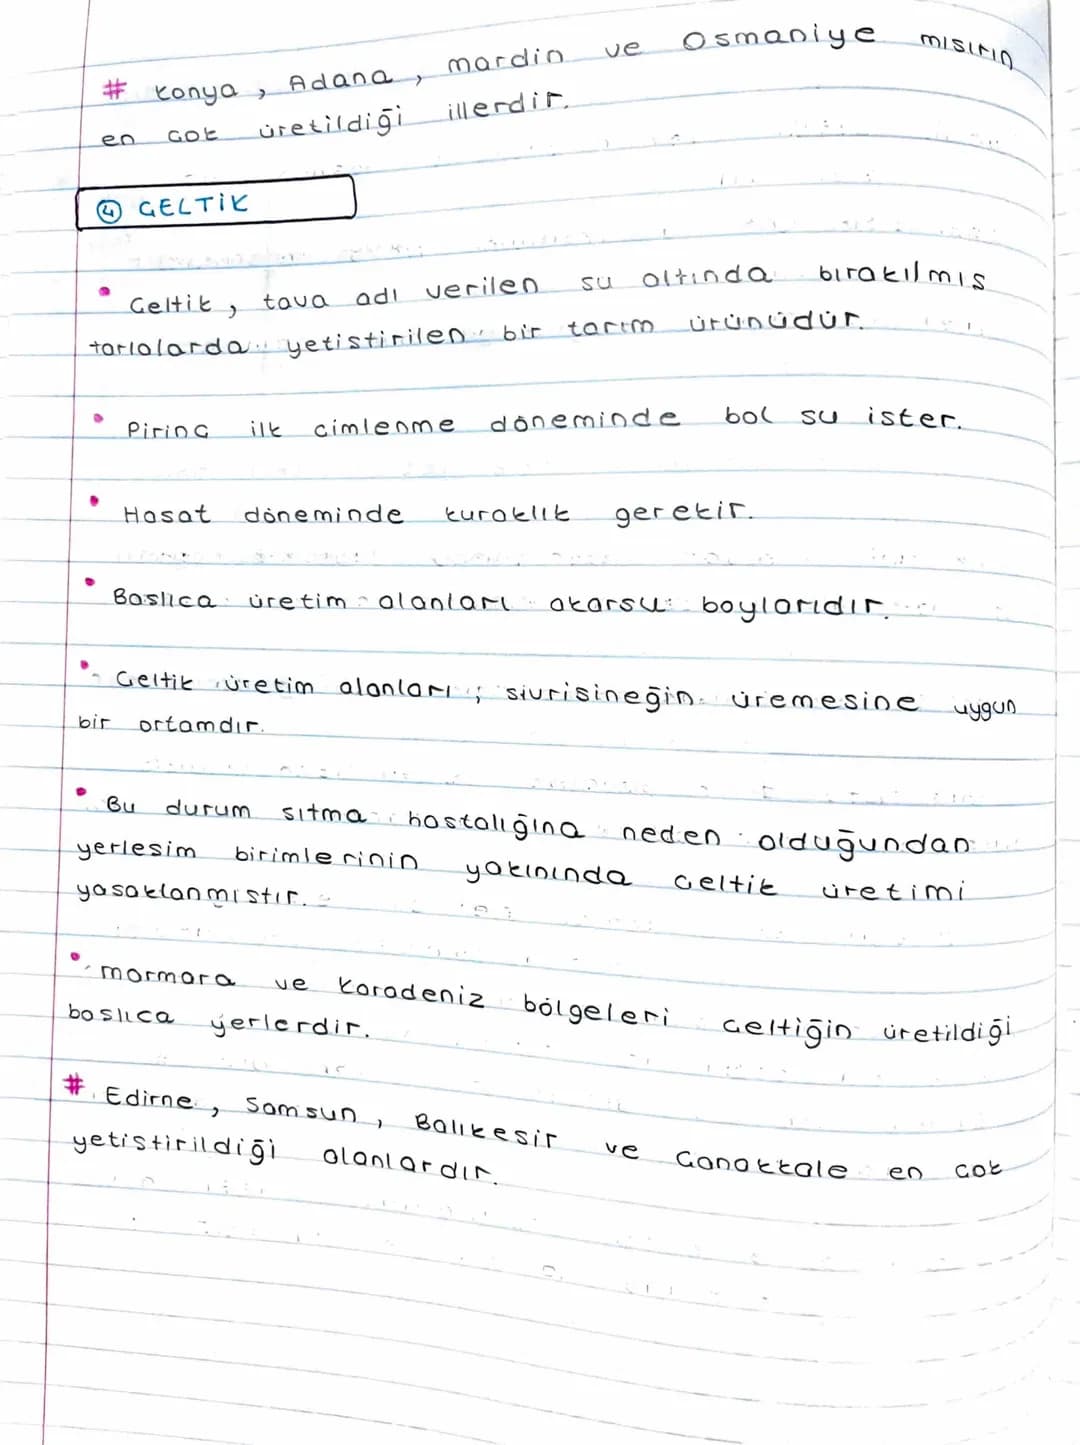 # Konya, Adana, mardin ve Osmaniye mısırın
en çok üretildiği illerdir.
④ ÇELTİK
• Çeltik, tava adı verilen su altında bırakılmış
tarlalarda yetiştirilen bir tarım ürünüdür.
• Pirinç ilk çimlenme döneminde bol su ister.
• Hasat döneminde kuraklık gerekir.
• Başlıca üretim alanları akarsu boylarıdır.
• Çeltik üretim alanları; sivrisineğin üremesine uygun
bir ortamdır.
• Bu durum sıtma hastalığına neden olduğundan
yerleşim birimlerinin yakınında çeltik üretimi
yasaklanmıştır.
• marmara ve Karadeniz bölgeleri çeltiğin üretildiği
başlıca yerlerdir.
# Edirne, Samsun, Balıkesir ve Çanakkale en çok
yetiştirildiği alanlardır.